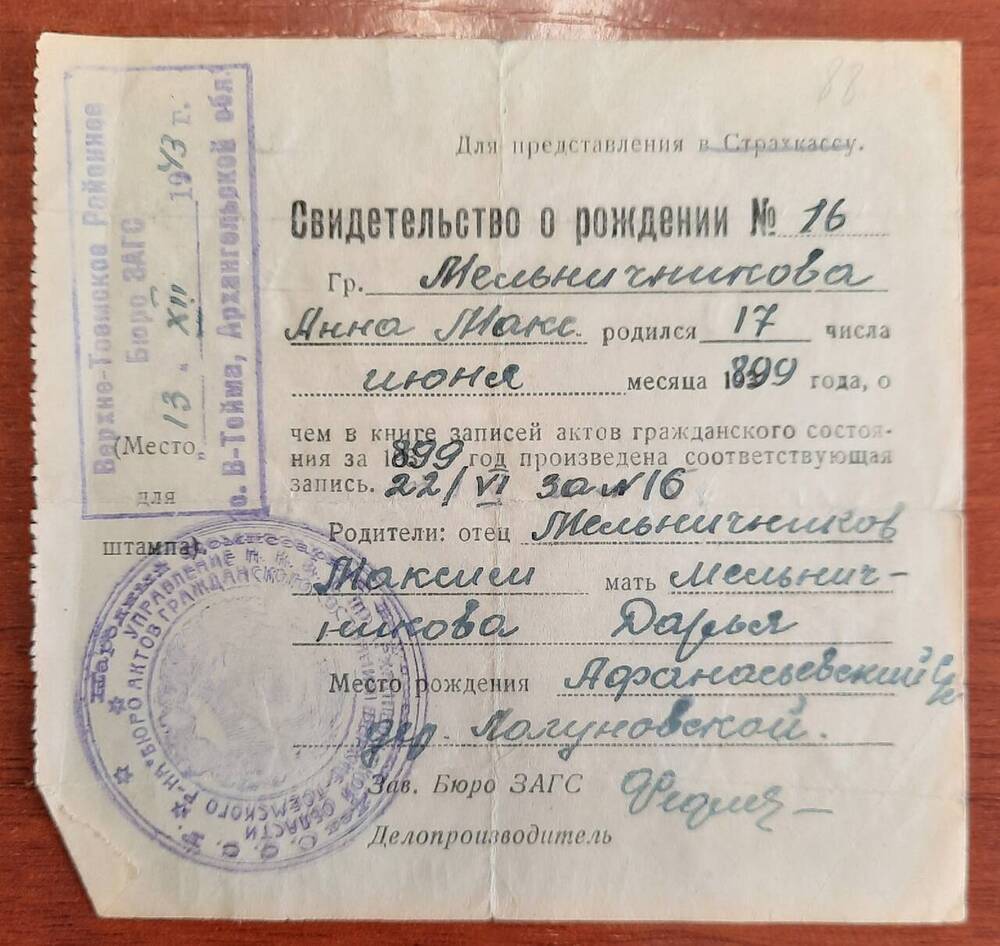 88
Для представления в Страхкассу.
Свидетельство о рождении № 16
Гр. Мельничникова
Анна Макс. родился 17 числа
июня месяца 1899 года, о
чем в книге записей актов гражданского состоя-
ния за 1899 год произведена соответствующая
запись. 22/VI за №16
Родители: отец Мельничников
Максим мать Мельнич-
никова Дарья
Место рождения Афанасьевский с/с
дер. Логуновской.
Зав. Бюро ЗАГС
Делопроизводитель
(Место
для
штампа).
Верхне-Тоемское Районное
Бюро ЗАГС
"13" XII 1943 г.
с. В-Тойма, Архангельской обл.
УПРАВЛЕНИЕ Н. К. В. Д.
БЮРО АКТОВ ГРАЖДАНСКОГО СОСТОЯНИЯ
ОБЛАСТИ